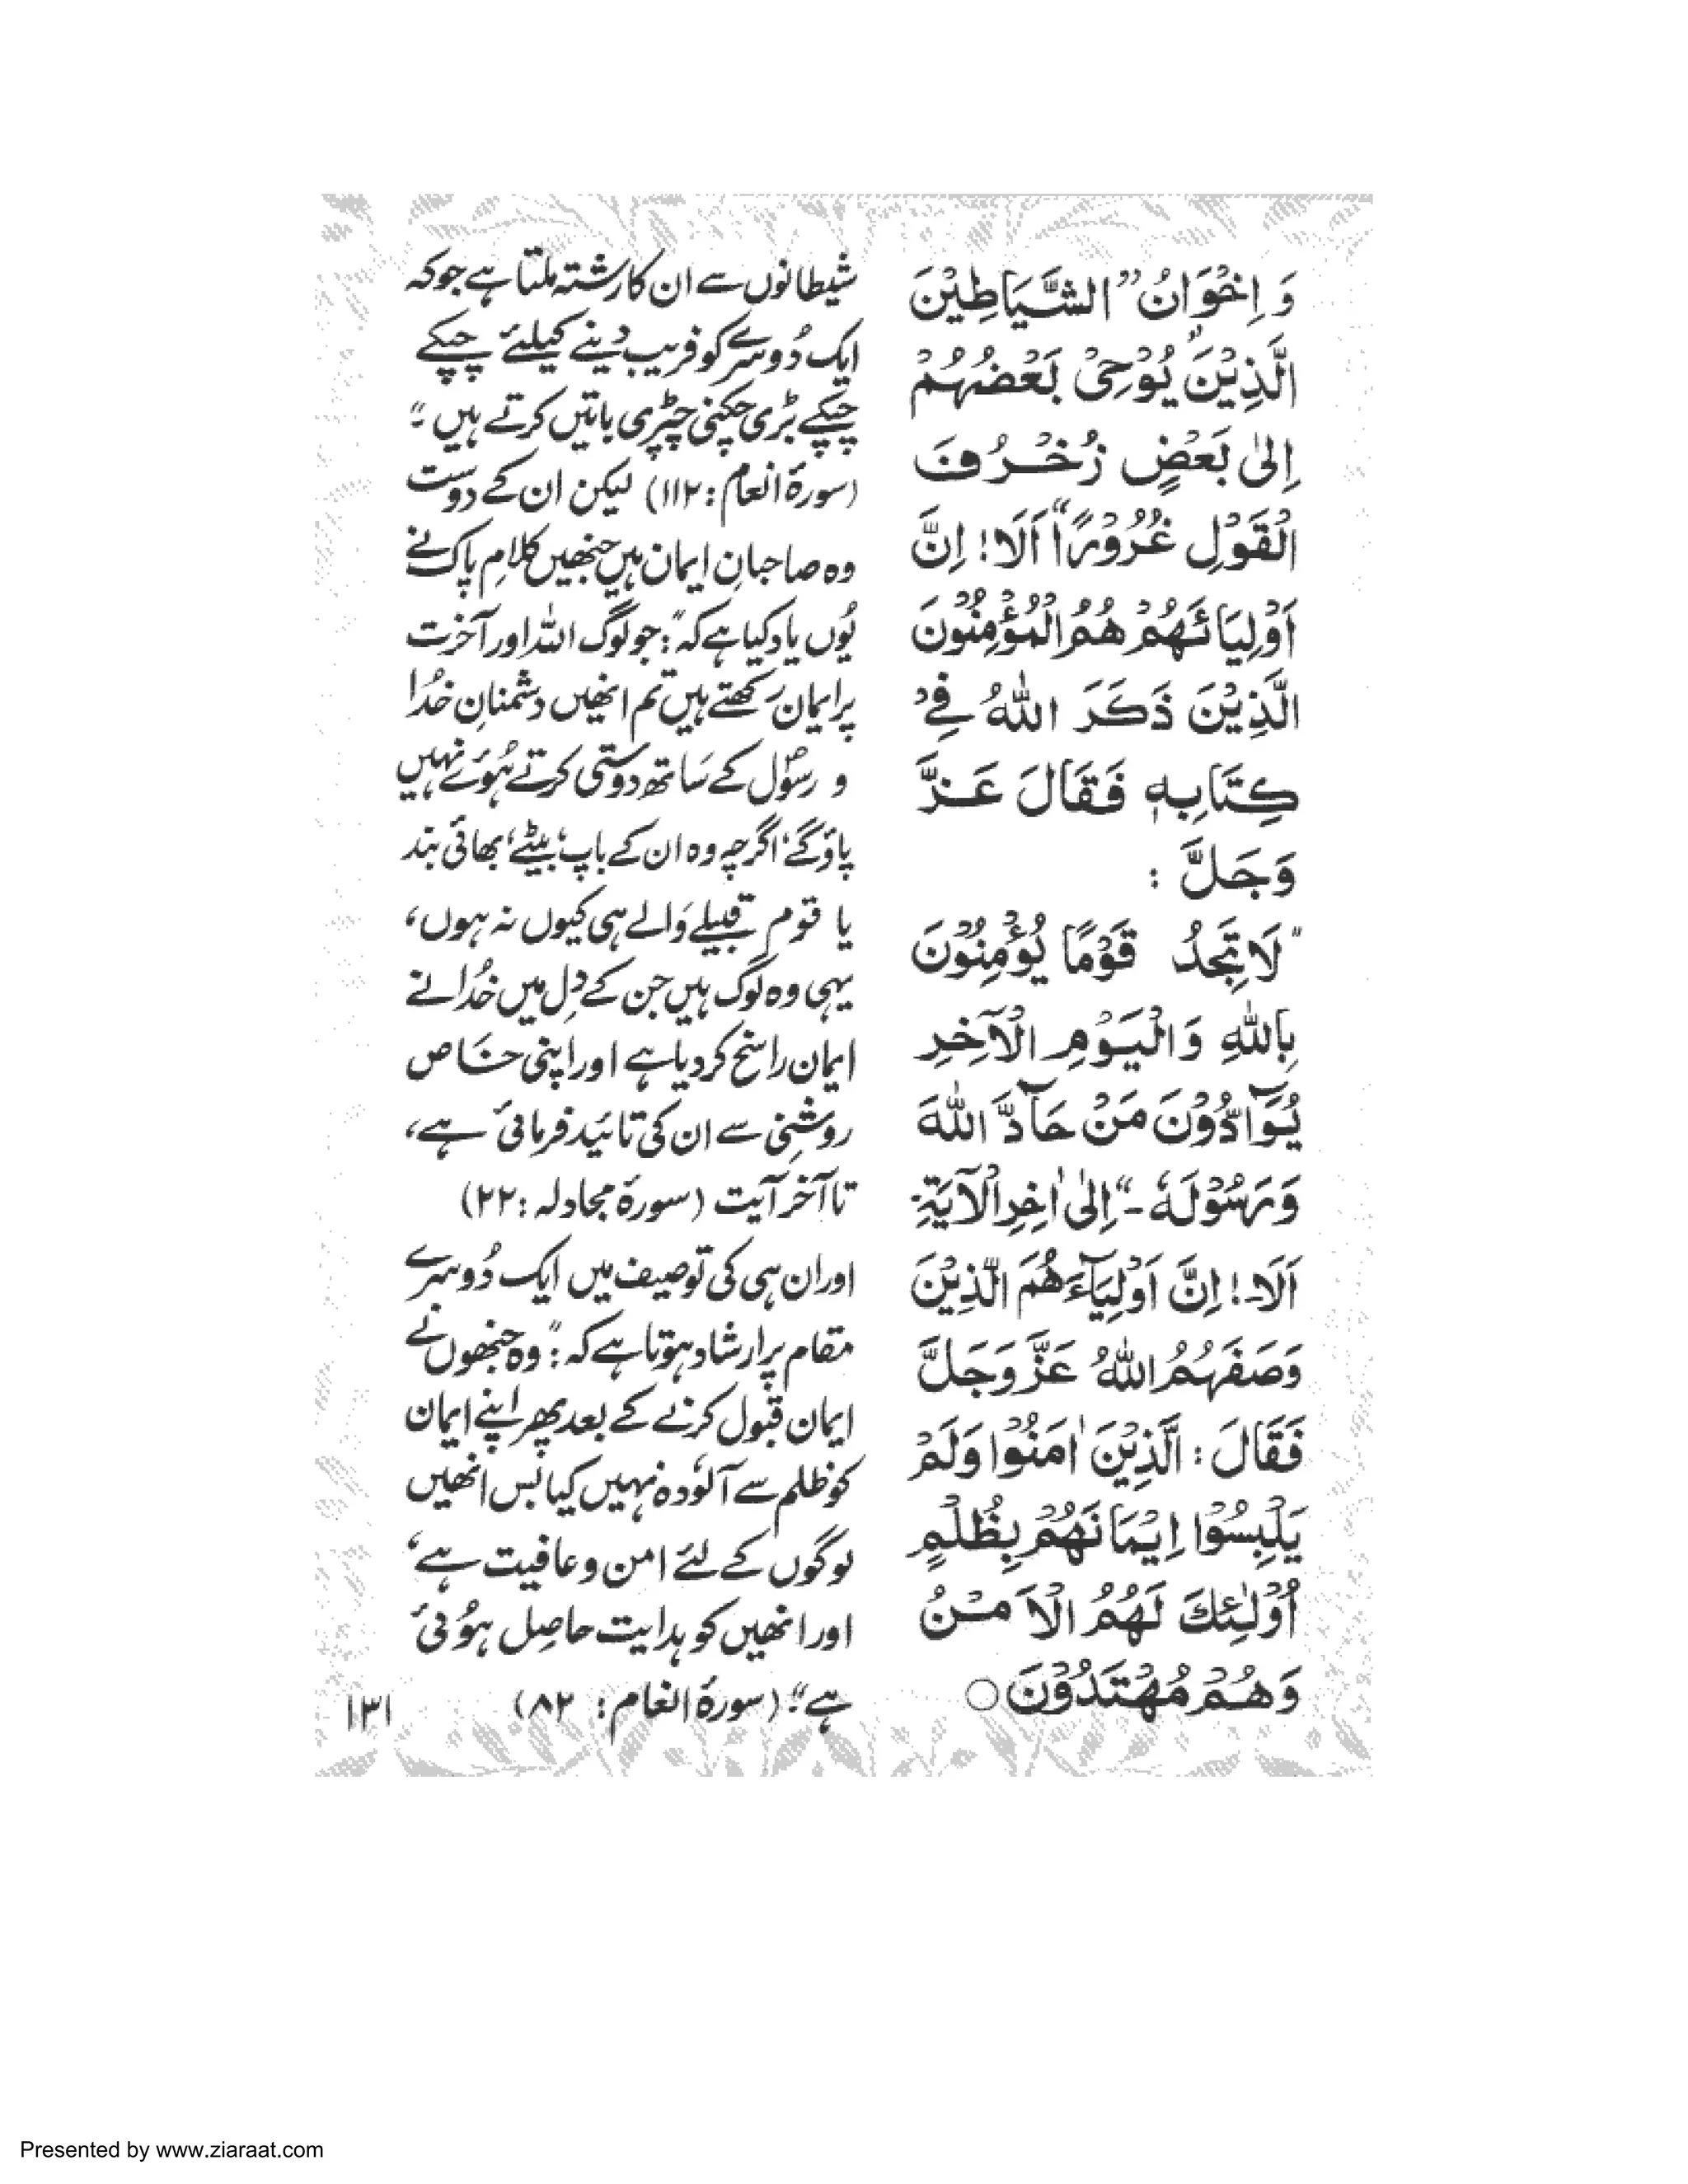 وَ اِخْوَانُ ” الشَّيَاطِيْنَ
الَّذِيْنَ يُوْحِيْ بَعْضُهُمْ
اِلىٰ بَعْضٍ زُخْرُفَ
الْقَوْلِ غُرُوْرًا“ اَلَا! اِنَّ
اَوْلِيَائَهُمْ هُمُ الْمُؤْمِنُوْنَ
الَّذِيْنَ ذَكَرَ اللهُ فِيْ
كِتَابِهٖ فَقَالَ عَزَّ
وَجَلَّ :
”لَا تَجِدُ قَوْمًا يُؤْمِنُوْنَ
بِاللهِ وَالْيَوْمِ الْآخِرِ
يُوَآدُّوْنَ مَنْ حَآدَّ اللهَ
وَرَسُوْلَهٗ۔“ اِلىٰ اٰخِرِ الْآيَةِ۔
اَلَا۔! اِنَّ اَوْلِيَآءَهُمُ الَّذِيْنَ
وَصَفَهُمُ اللهُ عَزَّ وَجَلَّ
فَقَالَ : اَلَّذِيْنَ اٰمَنُوْا وَلَمْ
يَلْبِسُوْا اِيْمَانَهُمْ بِظُلْمٍ
اُوْلٰئِكَ لَهُمُ الْاَمْنُ
وَهُمْ مُهْتَدُوْنَ○
شیطانوں سے ان کا رشتہ ملتا ہے جو کہ
ایک دُوسرے کو فریب دینے کیلئے چپکے
چپکے بڑی چکنی چپڑی باتیں کرتے ہیں۔“
(سورۂ انعام : ۱۱۲) لیکن ان کے دوست
وہ صاحبانِ ایمان ہیں جنھیں کلامِ پاک نے
یُوں یاد کیا ہے کہ :”جو لوگ اللہ اور آخرت
پر ایمان رکھتے ہیں تم انھیں دشمنانِ خدُا
و رسُولؐ کے سَاتھ دوستی کرتے ہُوئے نہیں
پاؤ گے، اگرچہ وہ ان کے باپ، بیٹے، بھائی بند
یا قوم قبیلے وَالے ہی کیوں نہ ہوں،
یہی وہ لوگ ہیں جن کے دِل میں خدُا نے
ایمان راسخ کر دیا ہے اور اپنی خَاص
روشنِی سے ان کی تائید فرمائی ہے،
تا آخر آیت (سورۂ مجادلہ :۲۲)
اور ان ہی کی توصیف میں ایک دُوسرے
مقام پر ارشاد ہوتا ہے کہ :”وہ جنھوں نے
ایمان قبول کرنے کے بعد پھر اپنے ایمان
کو ظلم سے آلوُدہ نہیں کیا بَس انھیں
لوگوں کے لئے امن و عافیت ہے،
اور انھیں کو ہدایت حاصِل ہُوئی
ہے۔“ (سورۂ انعام : ۸۲)
۱۳۱
Presented by www.ziaraat.com